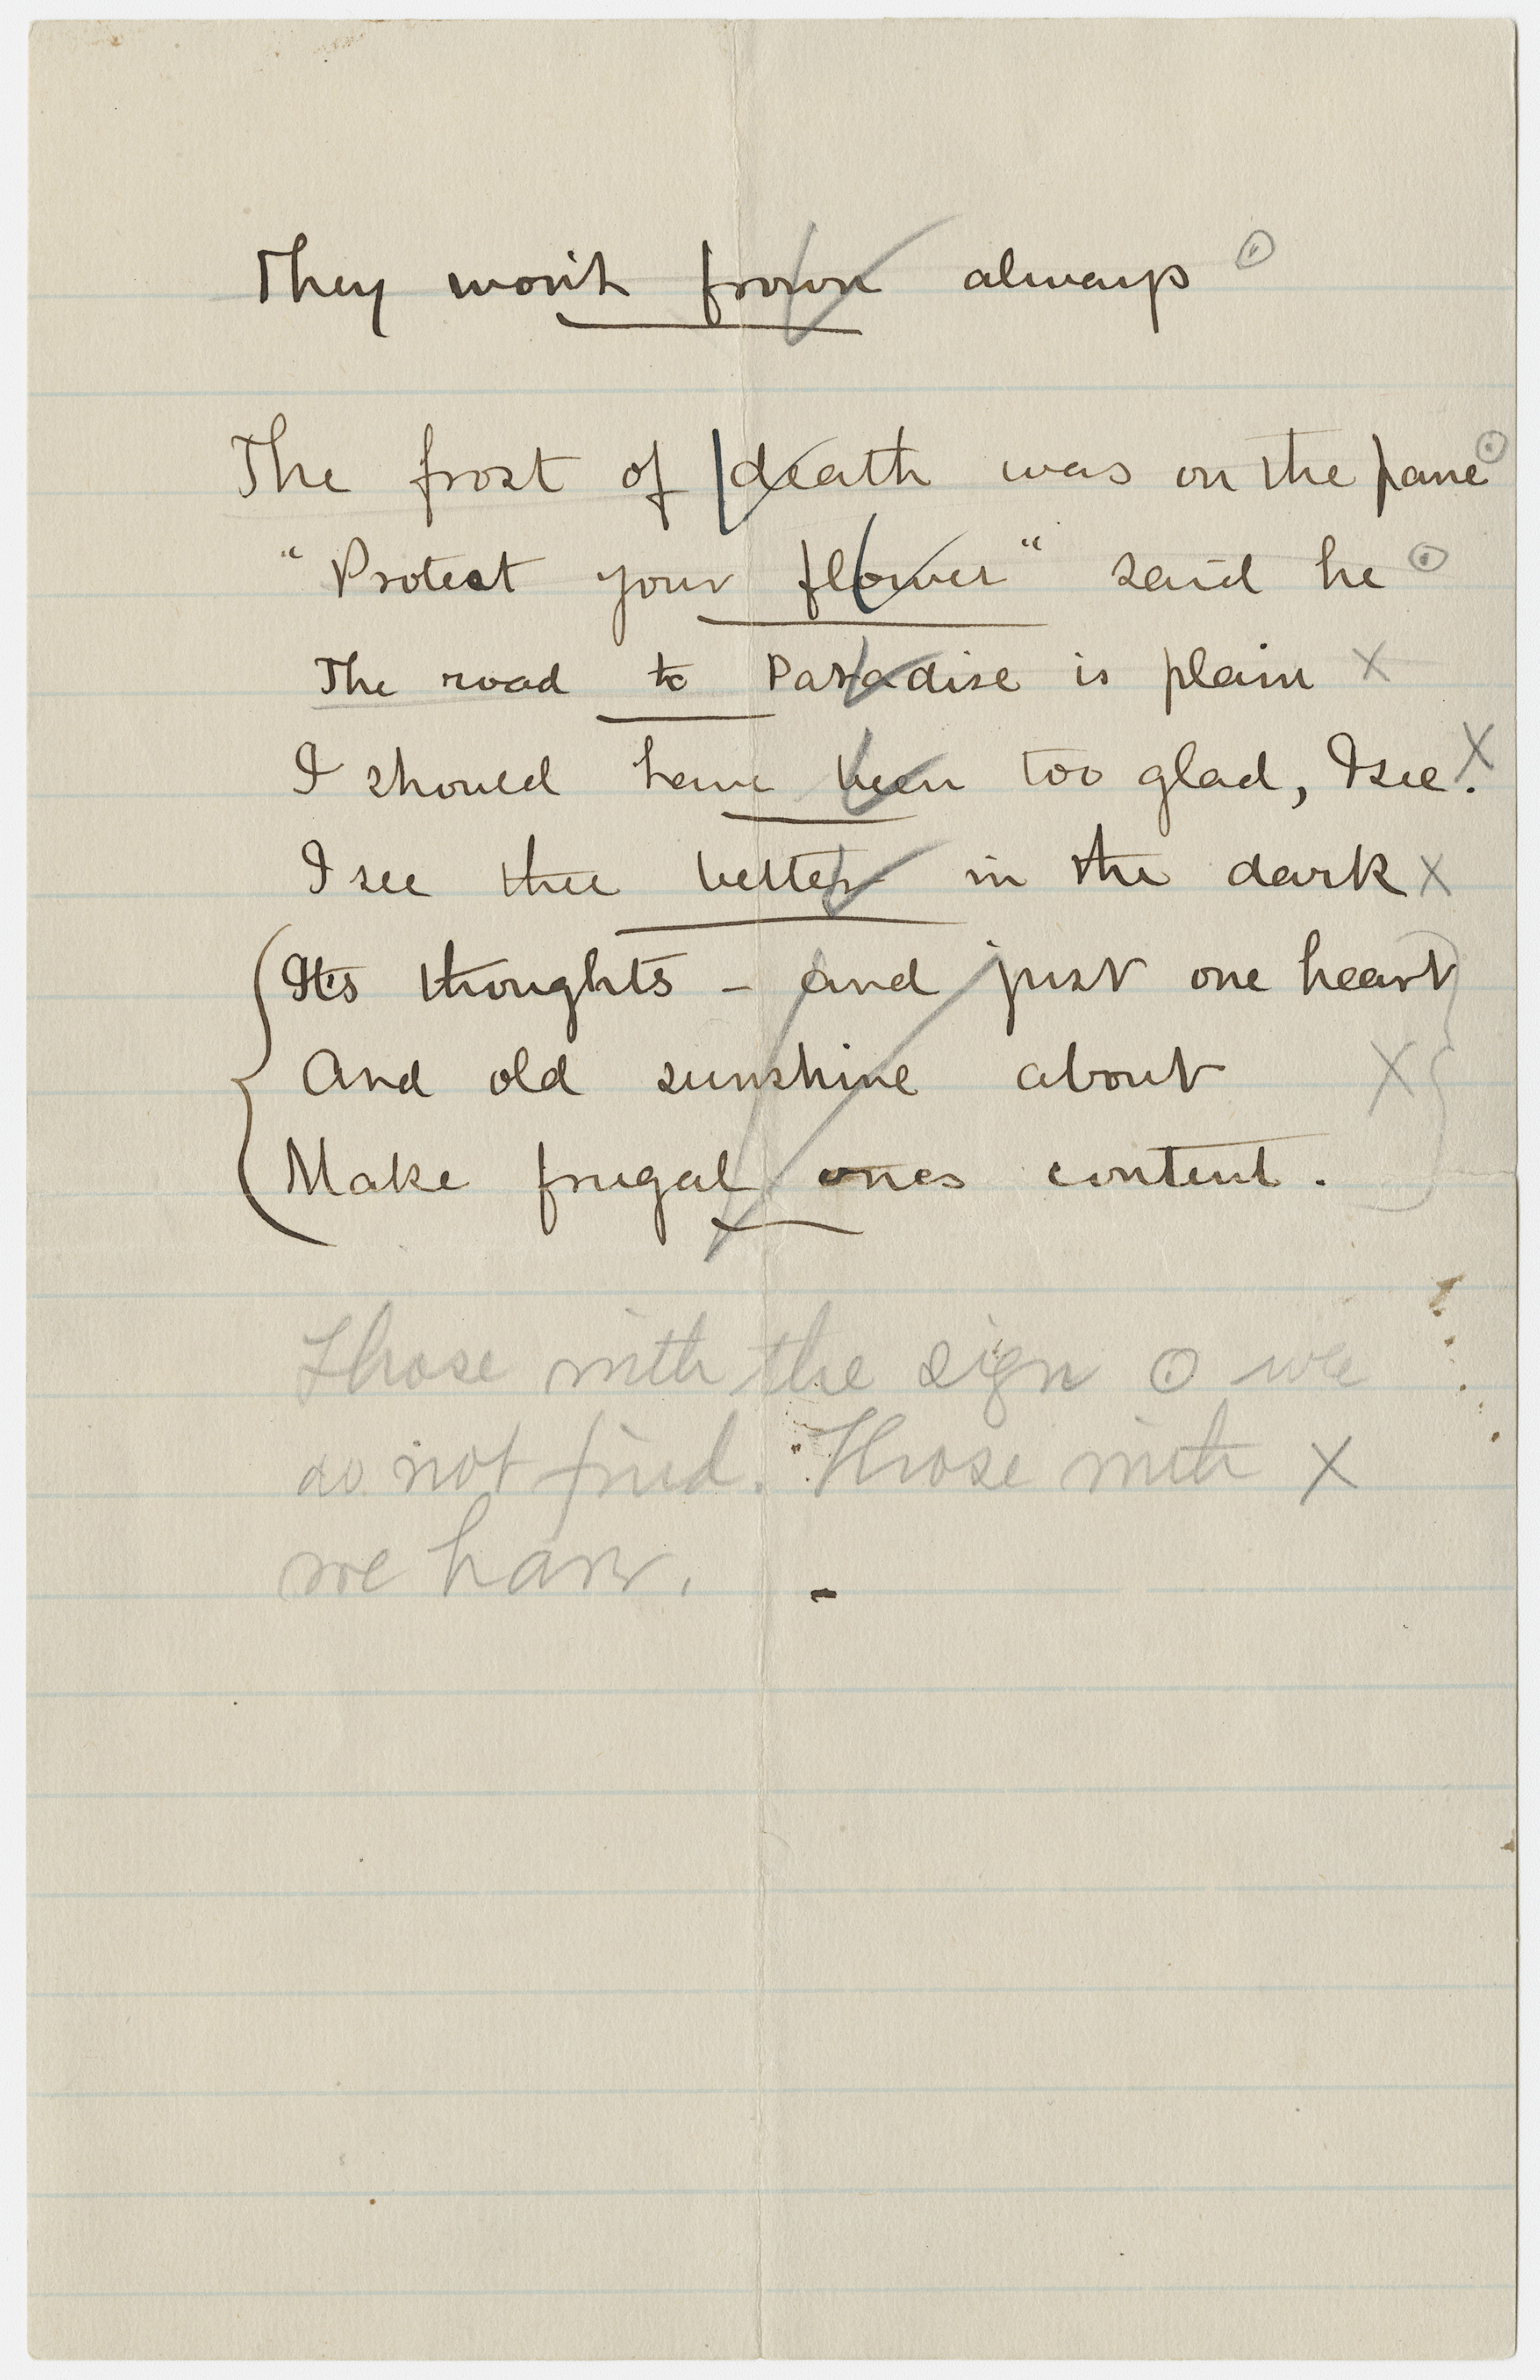 They won't frown always ⊙
The frost of death was on the pane ⊙
"Protect your flower" said he ⊙
The road to Paradise is plain X
I should have been too glad, I see. X
I see thee better in the dark X
It's thoughts - and just one heart
And old sunshine about X
Make frugal ones content.
Those with the sign ⊙ we
do not find. Those with X
we have.